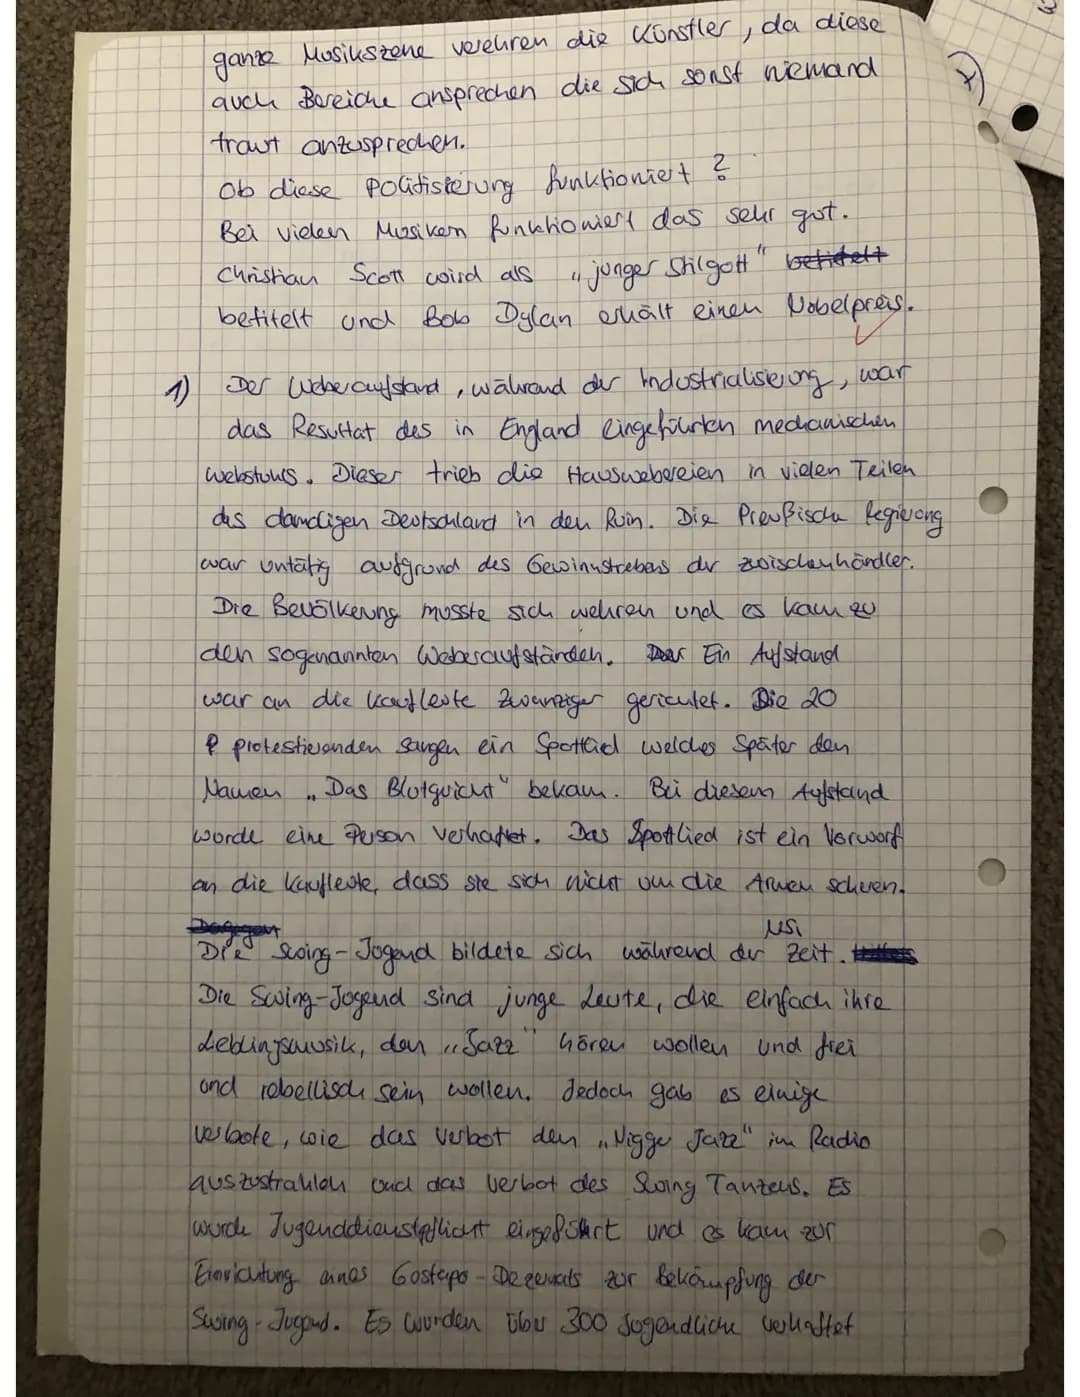 ganze Musikszene verehren die Künstler, da diese
auch Bereiche ansprechen die sich sonst niemand
traut anzusprechen.
Ob diese Politisierung funktioniert?
Bei vielen Musikern funktioniert das sehr gut.
Christian Scott wird als „junger Stilgott" betitelt
betitelt und Bob Dylan erhält einen Nobelpreis.
1) Der Weberaufstand, während der Industrialisierung, war
das Resultat des in England eingeführten mechanischen
Webstuhls. Dieser trieb die Hauswebereien in vielen Teilen
des damaligen Deutschland in den Ruin. Die Preußische Regierung
war untätig aufgrund des Gewinnstrebens der Zwischenhändler.
Die Bevölkerung musste sich wehren und es kam zu
den sogenannten Weberaufständen. Ein Aufstand
war an die Kaufleute Zwanziger gerichtet. Die 20
protestierenden sangen ein Spottlied welches Später den
Namen „Das Blutgericht" bekam. Bei diesem Aufstand
wurde eine Person verhaftet. Das Spottlied ist ein Vorwurf
an die Kaufleute, dass sie sich nicht um die Armen scheren.
Dagegen
NS
Die Swing-Jugend bildete sich während der Zeit.
Die Swing-Jugend sind junge Leute, die einfach ihre
Lieblingsmusik, den „Jazz" hören wollen und frei
und rebellisch sein wollen. Jedoch gab es einige
Verbote, wie das Verbot den „Nigger Jazz" im Radio
auszustrahlen und das Verbot des Swing Tanzens. Es
wurde Jugenddienstpflicht eingeführt und es kam zur
Einrichtung eines Gestapo-Dezernats zur Bekämpfung der
Swing-Jugend. Es wurden über 300 Jugendliche verhaftet